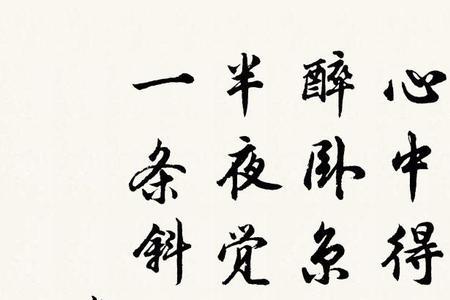 心中得
醉卧京
半夜觉
一条斜